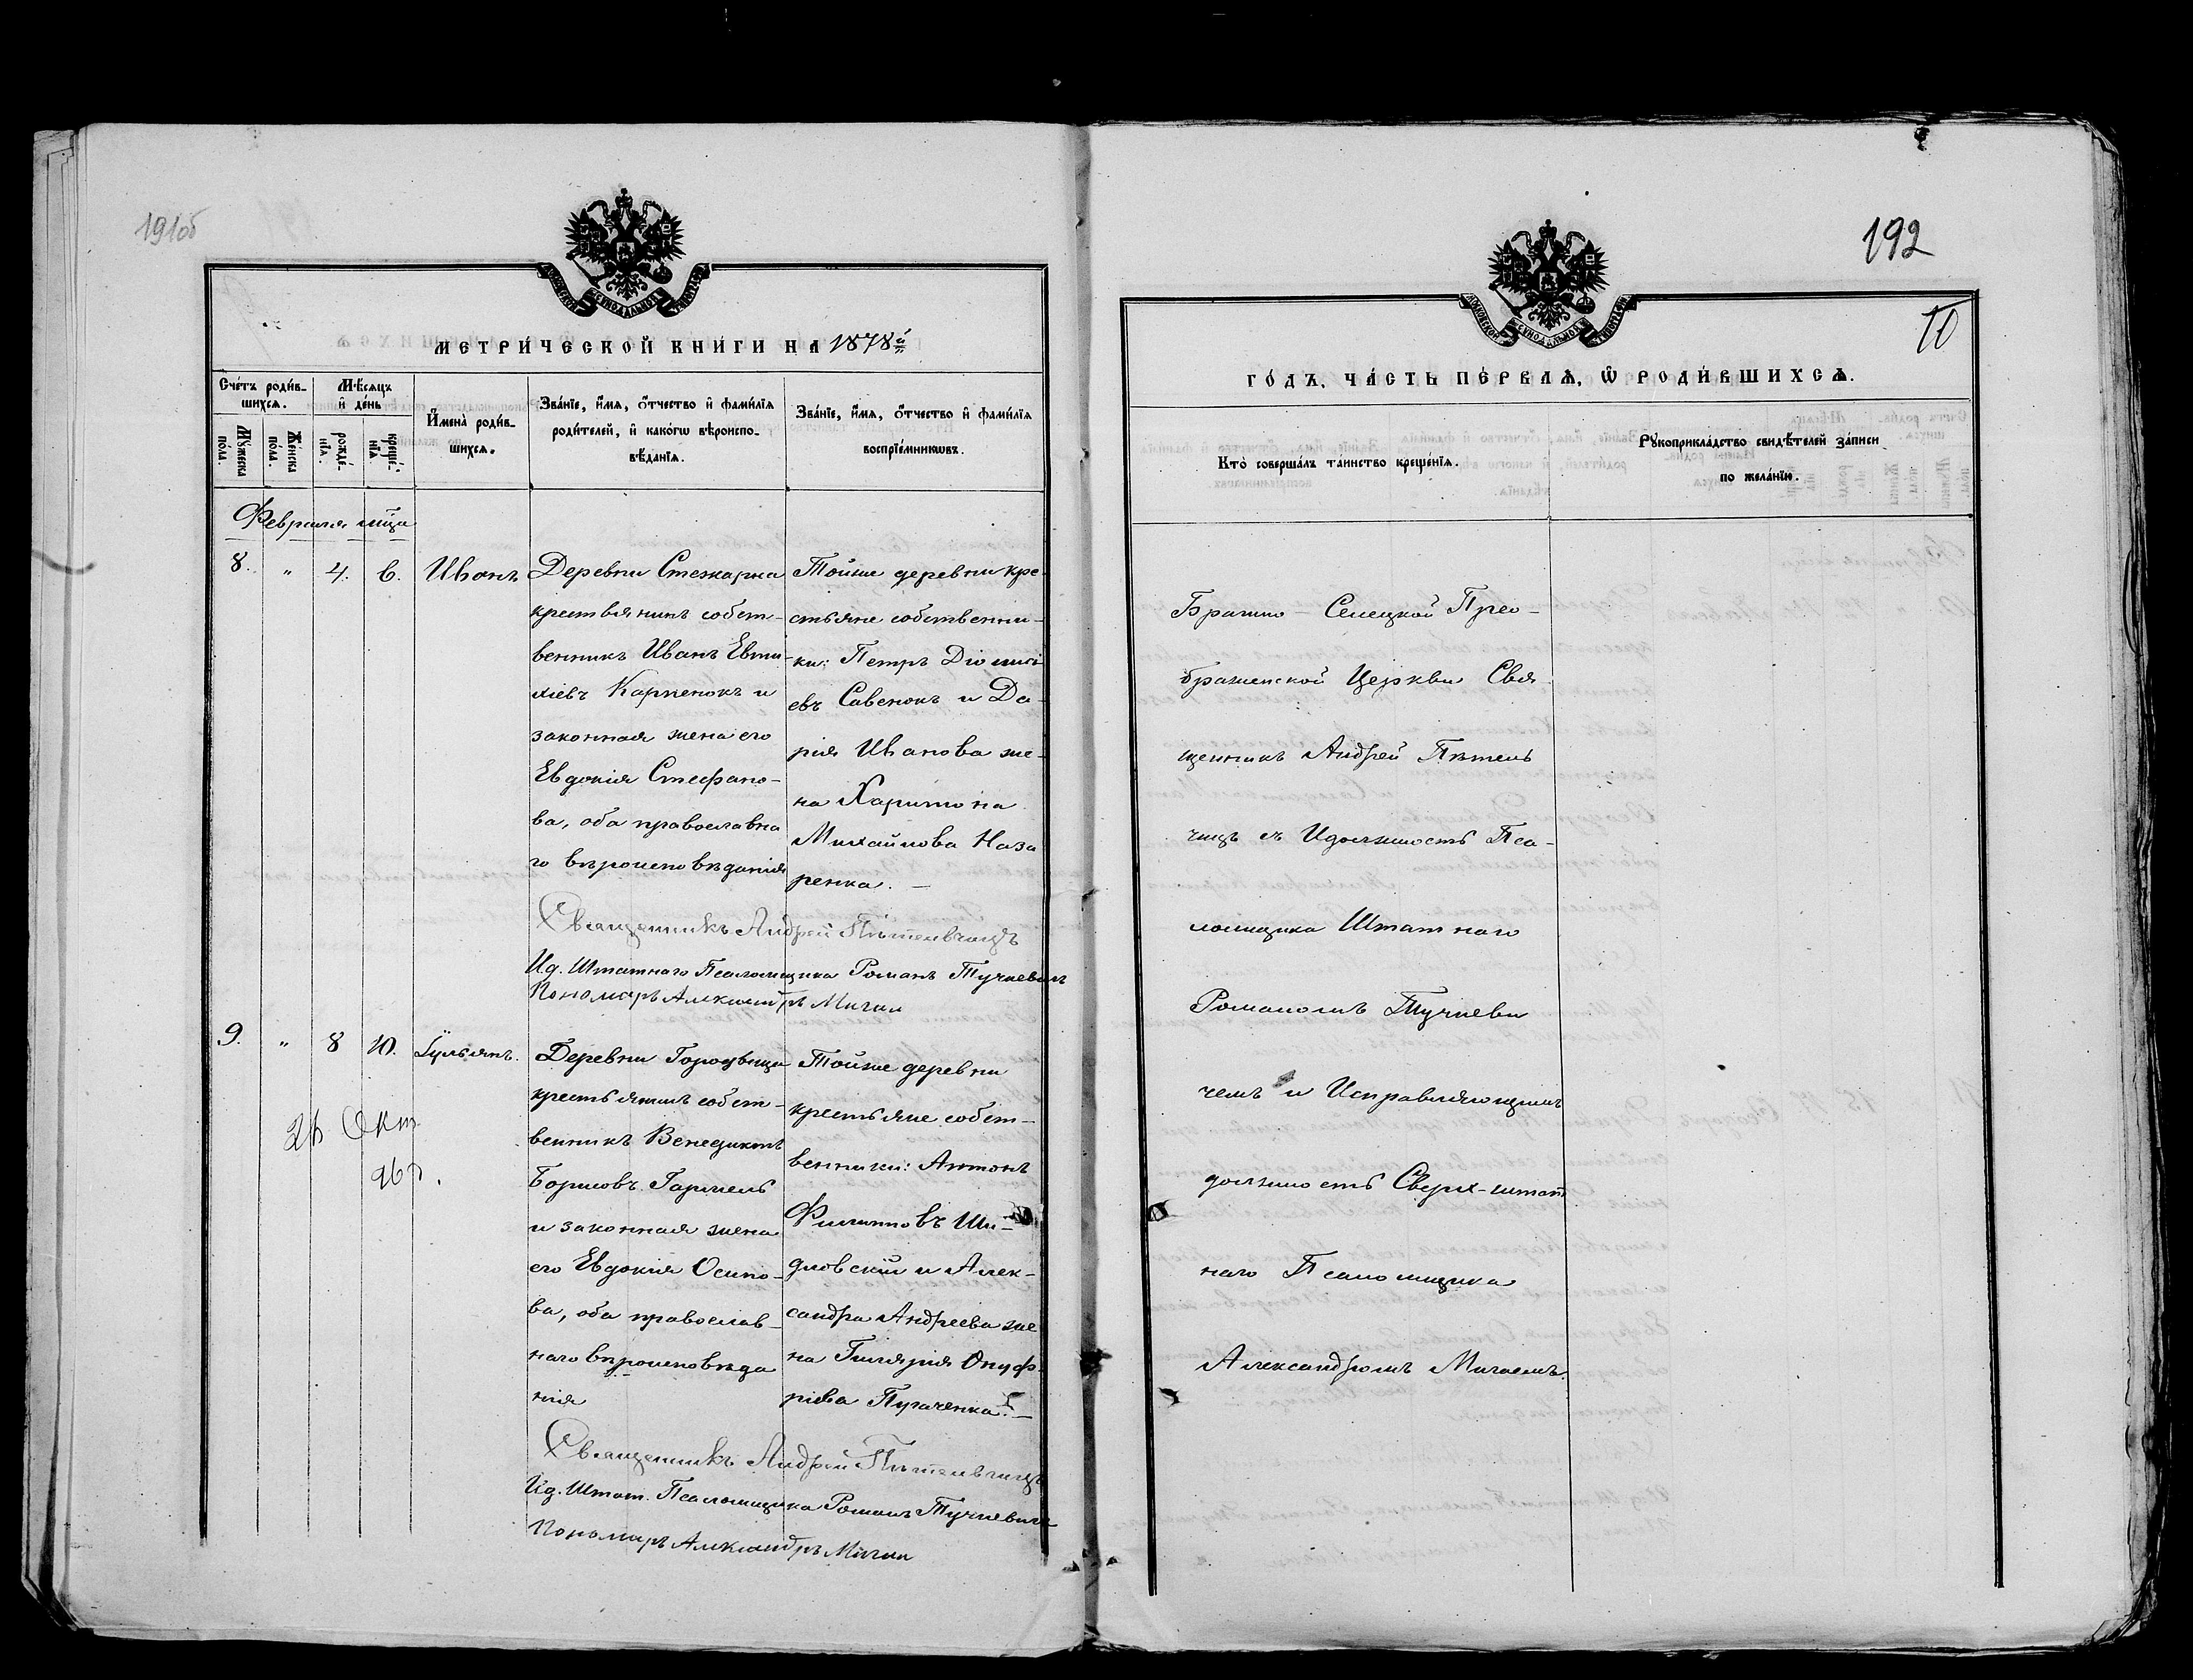 191об
МОСКОВСКОЙ СѴНОДАЛЬНОЙ ТИПОГРАФІИ
МЕТРИ́ЧЕСКОЙ КНИ́ГИ НА 1878й
Сче́тъ роди́в-
шихсѧ.
Мꙋ́жеска
по́ла.
Же́нска
по́ла.
Мѣ́сѧцъ
и҆ де́нь
рожде́-
нїѧ.
креще́-
нїѧ.
И҆мена̀ роди́в-
шихсѧ.
Зва́нїе, и҆́мѧ, ѻ҆́тчество и҆ фами́лїѧ
роди́телей, и҆ како́гѡ вѣроиспо-
вѣ́данїѧ.
Зва́нїе, и҆́мѧ, ѻ҆́тчество и҆ фами́лїѧ
воспрїе́мникѡвъ.
Февраля мца
8. " 4. 6. Иванъ
Деревни Стежарка
крестьянинъ собст-
венникъ Иванъ Евти-
хіевъ Карпенокъ и
законная жена его
Евдокія Стефано-
ва, оба православна
го вѣроисповѣданія
Тойже деревни кре-
стьяне собственни-
ки: Петръ Діонисі-
евъ Савенокъ и Да-
рія Иванова же-
на Харитона
Михайлова Наза
ренка. —
Священникъ Андрей Пѣтельчицъ
Ид. Штатнаго Псаломщика Романъ Тучкевичъ
Пономарь Александръ Мигай
9. " 8 10. Іульянъ.
25 Окт
96 г.
Деревни
крестьянинъ собст-
венникъ Венедиктъ
Борисовъ Гармель
и законная жена
его Евдокія Осипо-
ва, оба православ-
наго вѣроисповѣда
нія
Тойже деревни
крестьяне собст-
венники: Антонъ
Филипповъ Ши-
дловскій и Алек-
сандра Андреева же
на Гилярія Онуф-
ріева Пугаченка. —
Священникъ Андрей Пѣтельчицъ
Ид. Штат. Псаломщика Романъ Тучкевичъ
Пономарь Александръ Мигай
192
10
МОСКОВСКОЙ СѴНОДАЛЬНОЙ ТИПОГРАФІИ
ГО́ДЪ, ЧА́СТЬ ПЕ́РВАѦ, Ѡ҆ РОДИ́ВШИХСѦ.
Кто̀ соверша́лъ та́инство креще́нїѧ.
Рꙋкоприкла́дство свидѣ́телей за́писи
по жела́нїю.
Селецкой Прео-
браженской Церкви Свя
щенникъ Андрей Пѣтель
чицъ съ И. должность Пса-
ломщика Штатнаго
Романомъ Тучкеви
чемъ и Исправляющимъ
должность Сверх-штат
наго Псаломщика
Александромъ Мигаемъ.